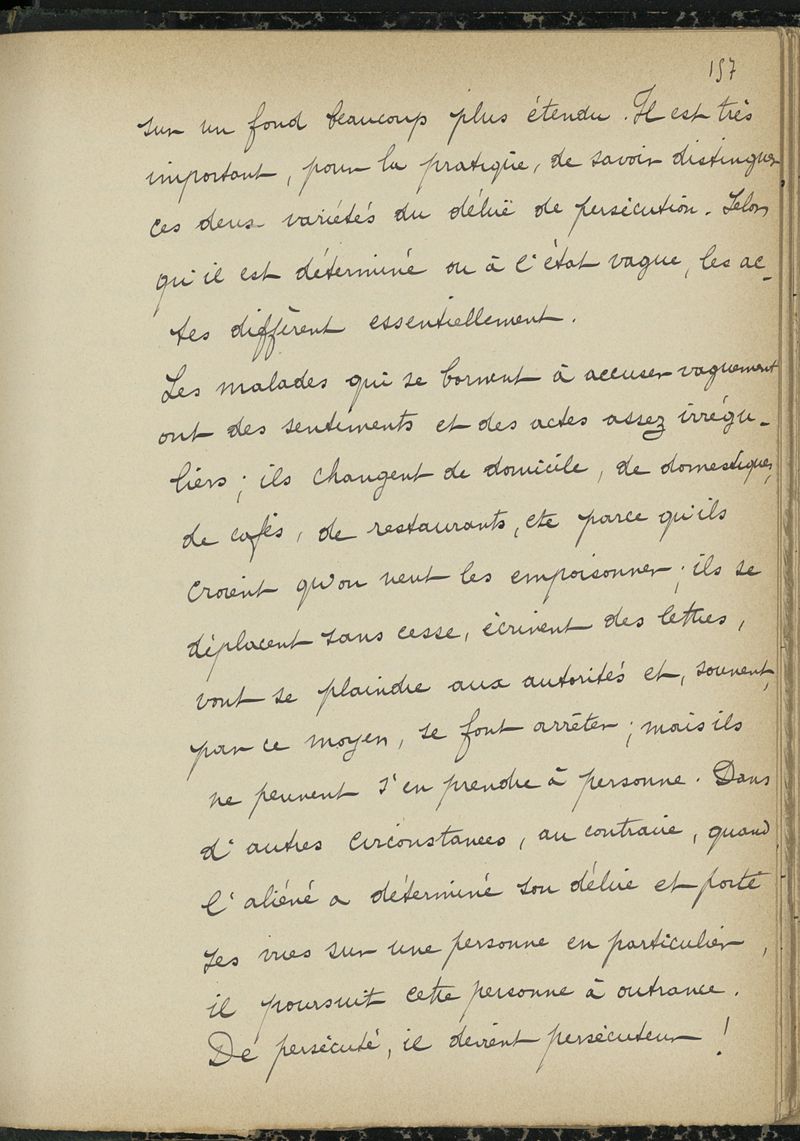 157
sur un fond beaucoup plus étendu. Il est très
important, pour la pratique, de savoir distinguer
ces deux variétés du délire de persécution. Selon
qu'il est déterminé ou à l'état vague, les ac-
tes diffèrent essentiellement.
Les malades qui se bornent à accuser vaguement
ont des sentiments et des actes assez irrégu-
liers; ils changent de domicile, de domestiques,
de cafés, de restaurants, etc parce qu'ils
croient qu'on veut les empoisonner; ils se
déplacent sans cesse, écrivent des lettres,
vont se plaindre aux autorités et, souvent,
par ce moyen, se font arrêter; mais ils
ne peuvent s'en prendre à personne. Dans
d'autres circonstances, au contraire, quand
l'aliéné a déterminé son délire et porté
ses vues sur une personne en particulier,
il poursuit cette personne à outrance.
De persécuté, il devient persécuteur!